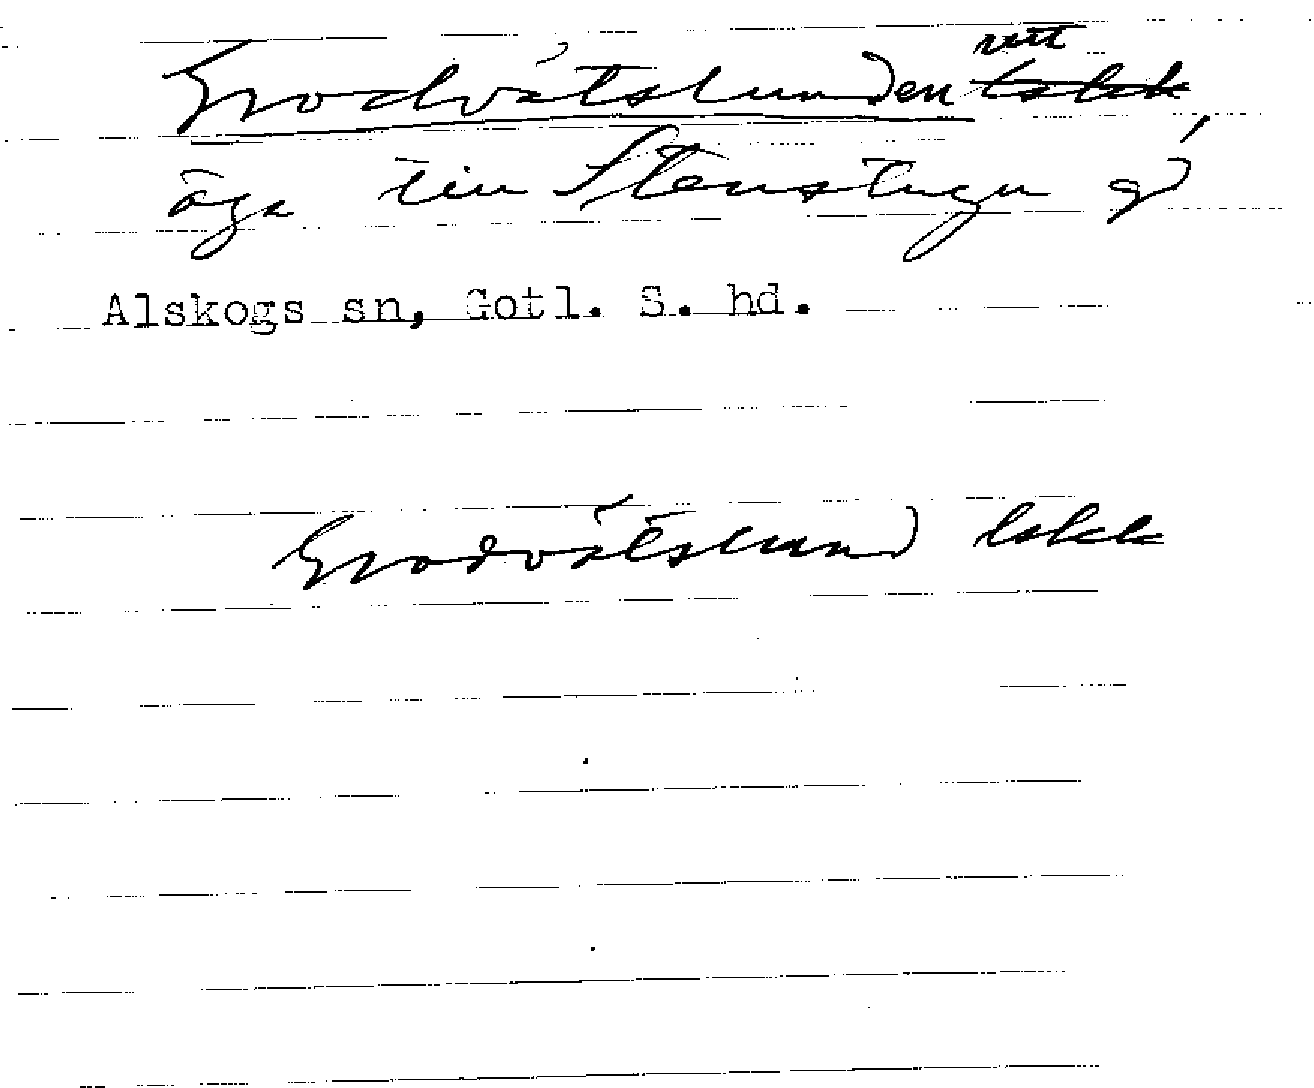 Grodvätslunden rett
äga till Stenstugu gd
Alskogs sn, Gotl. S. hd.
Grodvätslund lskk